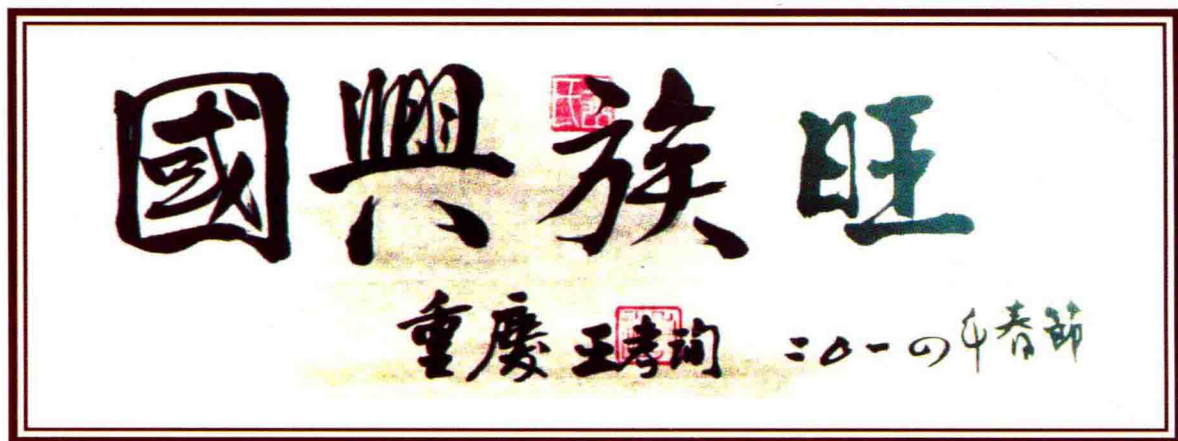 國興族旺
重慶 王孝询 二〇一四年春節